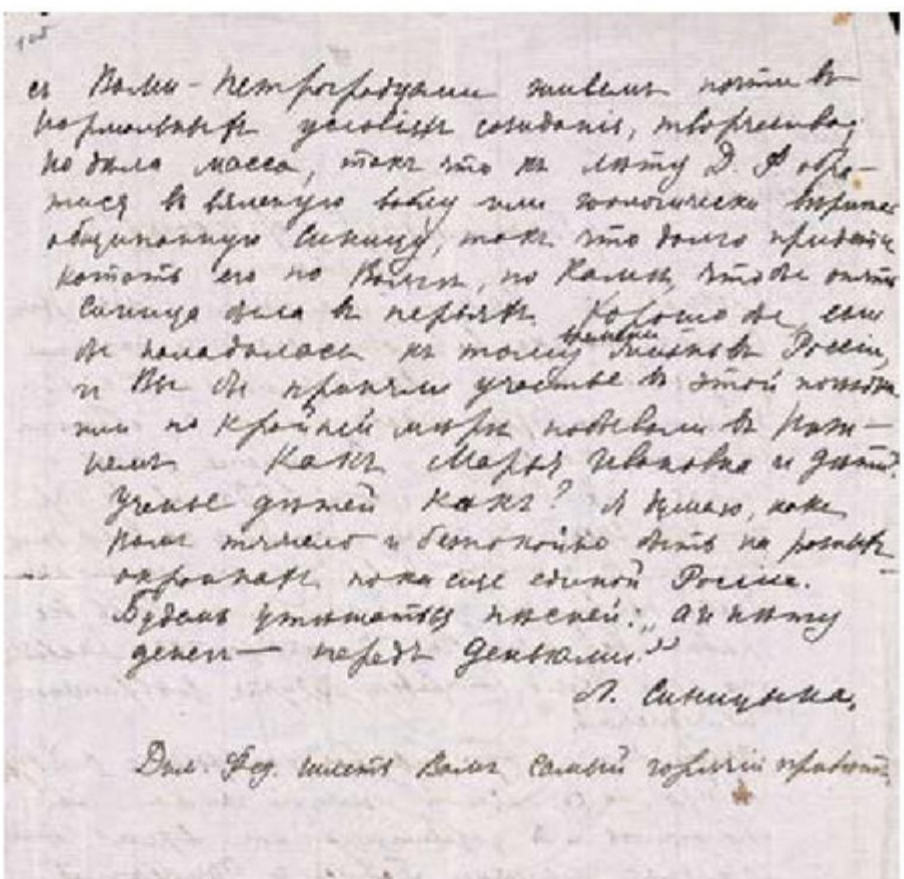 съ Вами - Петроградцами живемъ почти въ
нормальныхъ условіяхъ созиданія, творчества,
но дѣла масса, такъ что къ лѣту Д. Ф. обра-
тился въ вяленую воблу или зоологически вѣрнѣе
общипанную синицу, такъ что долго придется
катать его по Волгѣ, по Камѣ, чтобы опять
синица была въ перьяхъ. Хорошо бы, если
бы наладилась къ тому времени жизнь въ Россіи,
и Вы бы приняли участье въ этой поѣздкѣ
или по крайней мѣрѣ побывали въ Ниж-
немъ. Какъ Марья Ивановна и дѣти?
Ученье дѣтей какъ? Я думаю, какъ
Вамъ тяжело и безпокойно быть на
окраинахъ пока еще единой Россіи.
Будемъ утѣшаться пѣсней: „ай нѣту
денегъ — передъ деньгами."
Л. Синицына.
Дм. Фед. шлетъ Вамъ самый горячій привѣтъ.